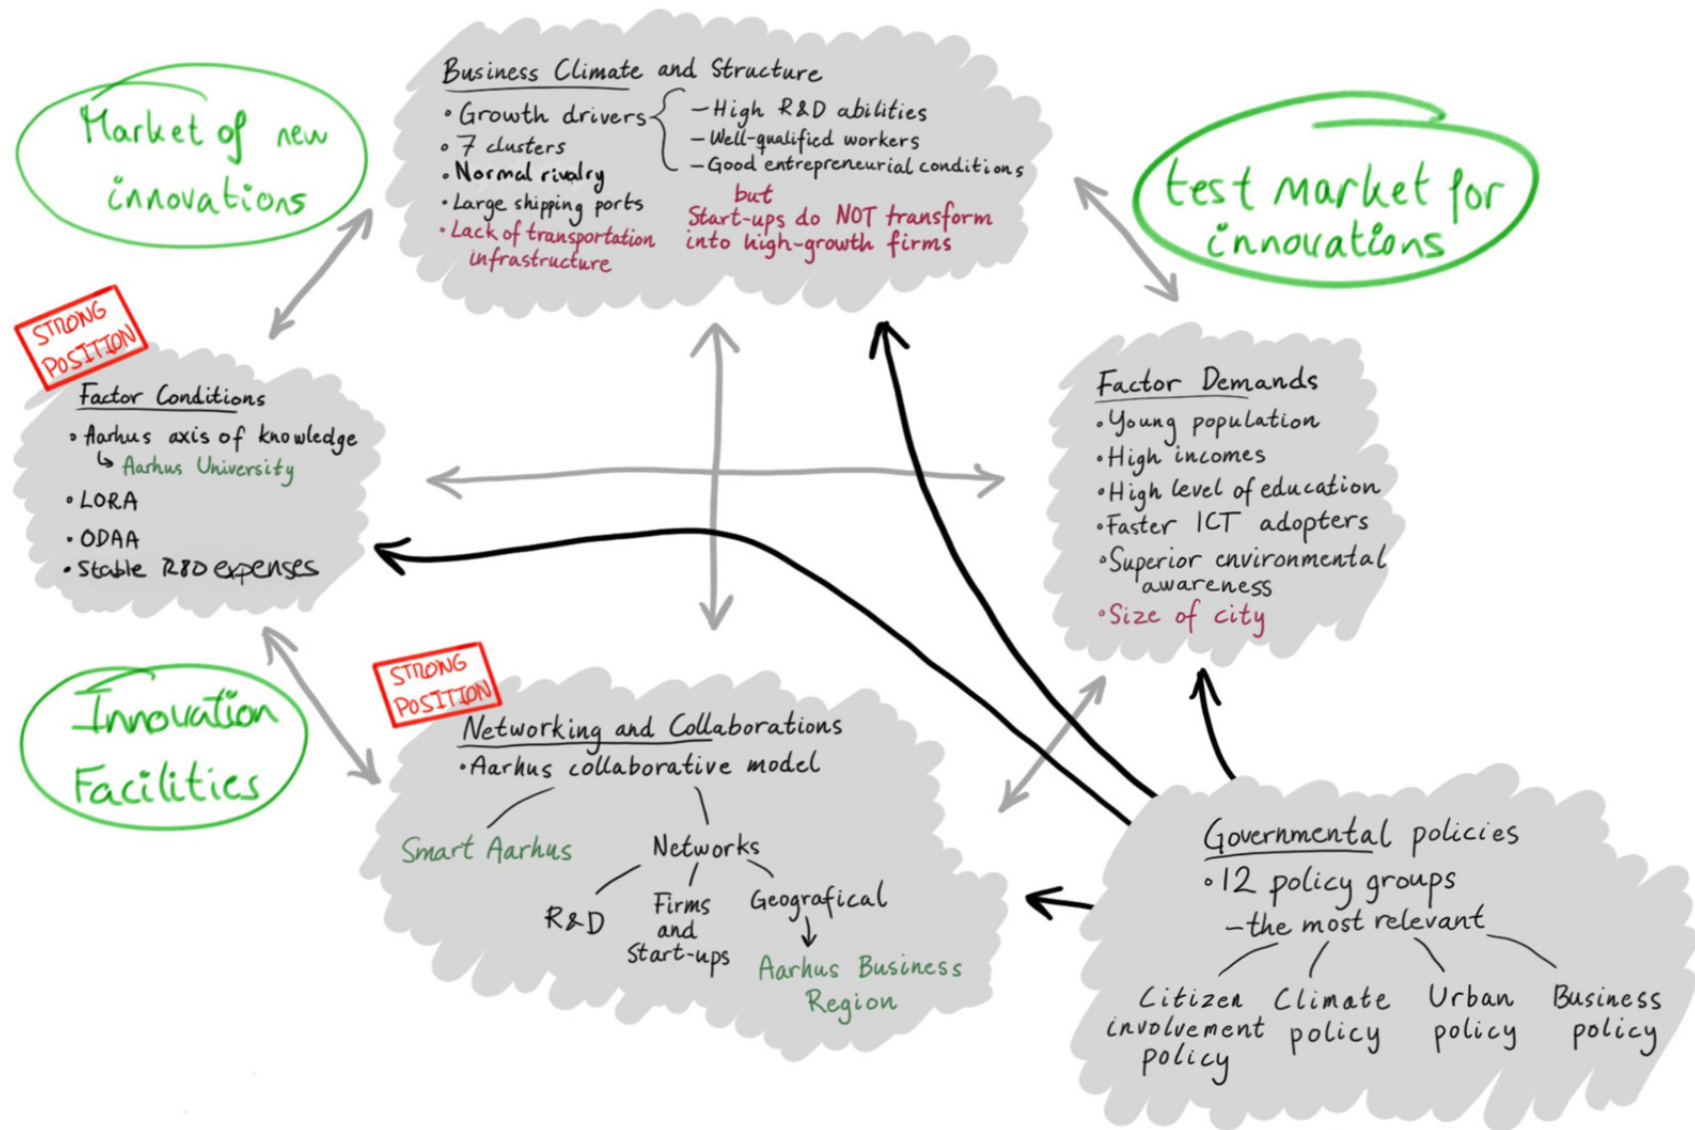 Market of new
innovations
Business Climate and Structure
• Growth drivers
– High R&D abilities
– Well-qualified workers
– Good entrepreneurial conditions
but
Start-ups do NOT transform
into high-growth firms
• 7 clusters
• Normal rivalry
• Large shipping ports
• Lack of transportation
infrastructure
test market for
innovations
STRONG
POSITION
Factor Conditions
• Aarhus axis of knowledge
↳ Aarhus University
• LORA
• ODAA
• Stable R&D expenses
Factor Demands
• Young population
• High incomes
• High level of education
• Faster ICT adopters
• Superior environmental
awareness
• Size of city
Innovation
Facilities
STRONG
POSITION
Networking and Collaborations
• Aarhus collaborative model
Smart Aarhus
Networks
R&D
Firms
and
Start-ups
Geografical
Aarhus Business
Region
Governmental policies
• 12 policy groups
– the most relevant
Citizen
involvement
policy
Climate
policy
Urban
policy
Business
policy